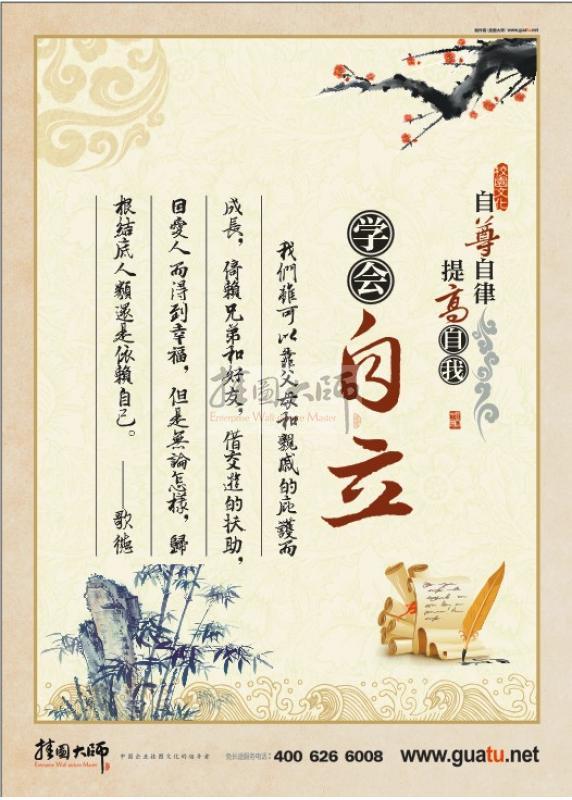 www.guatu.net
校园文化
自尊自律
提高自我
学会
自立
我們雖可以靠父母和親戚的庇護而
成長，倚賴兄弟和好友，借交遊的扶助，
因愛人而得到幸福，但是無論怎樣，歸
根結底人類還是依賴自己。——歌德
挂圖大師
Enterprise Wall-picture Master
挂圖大師
Enterprise Wall-picture Master
中國企业挂图文化的领导者
免长途服务电话：400 626 6008
www.guatu.net